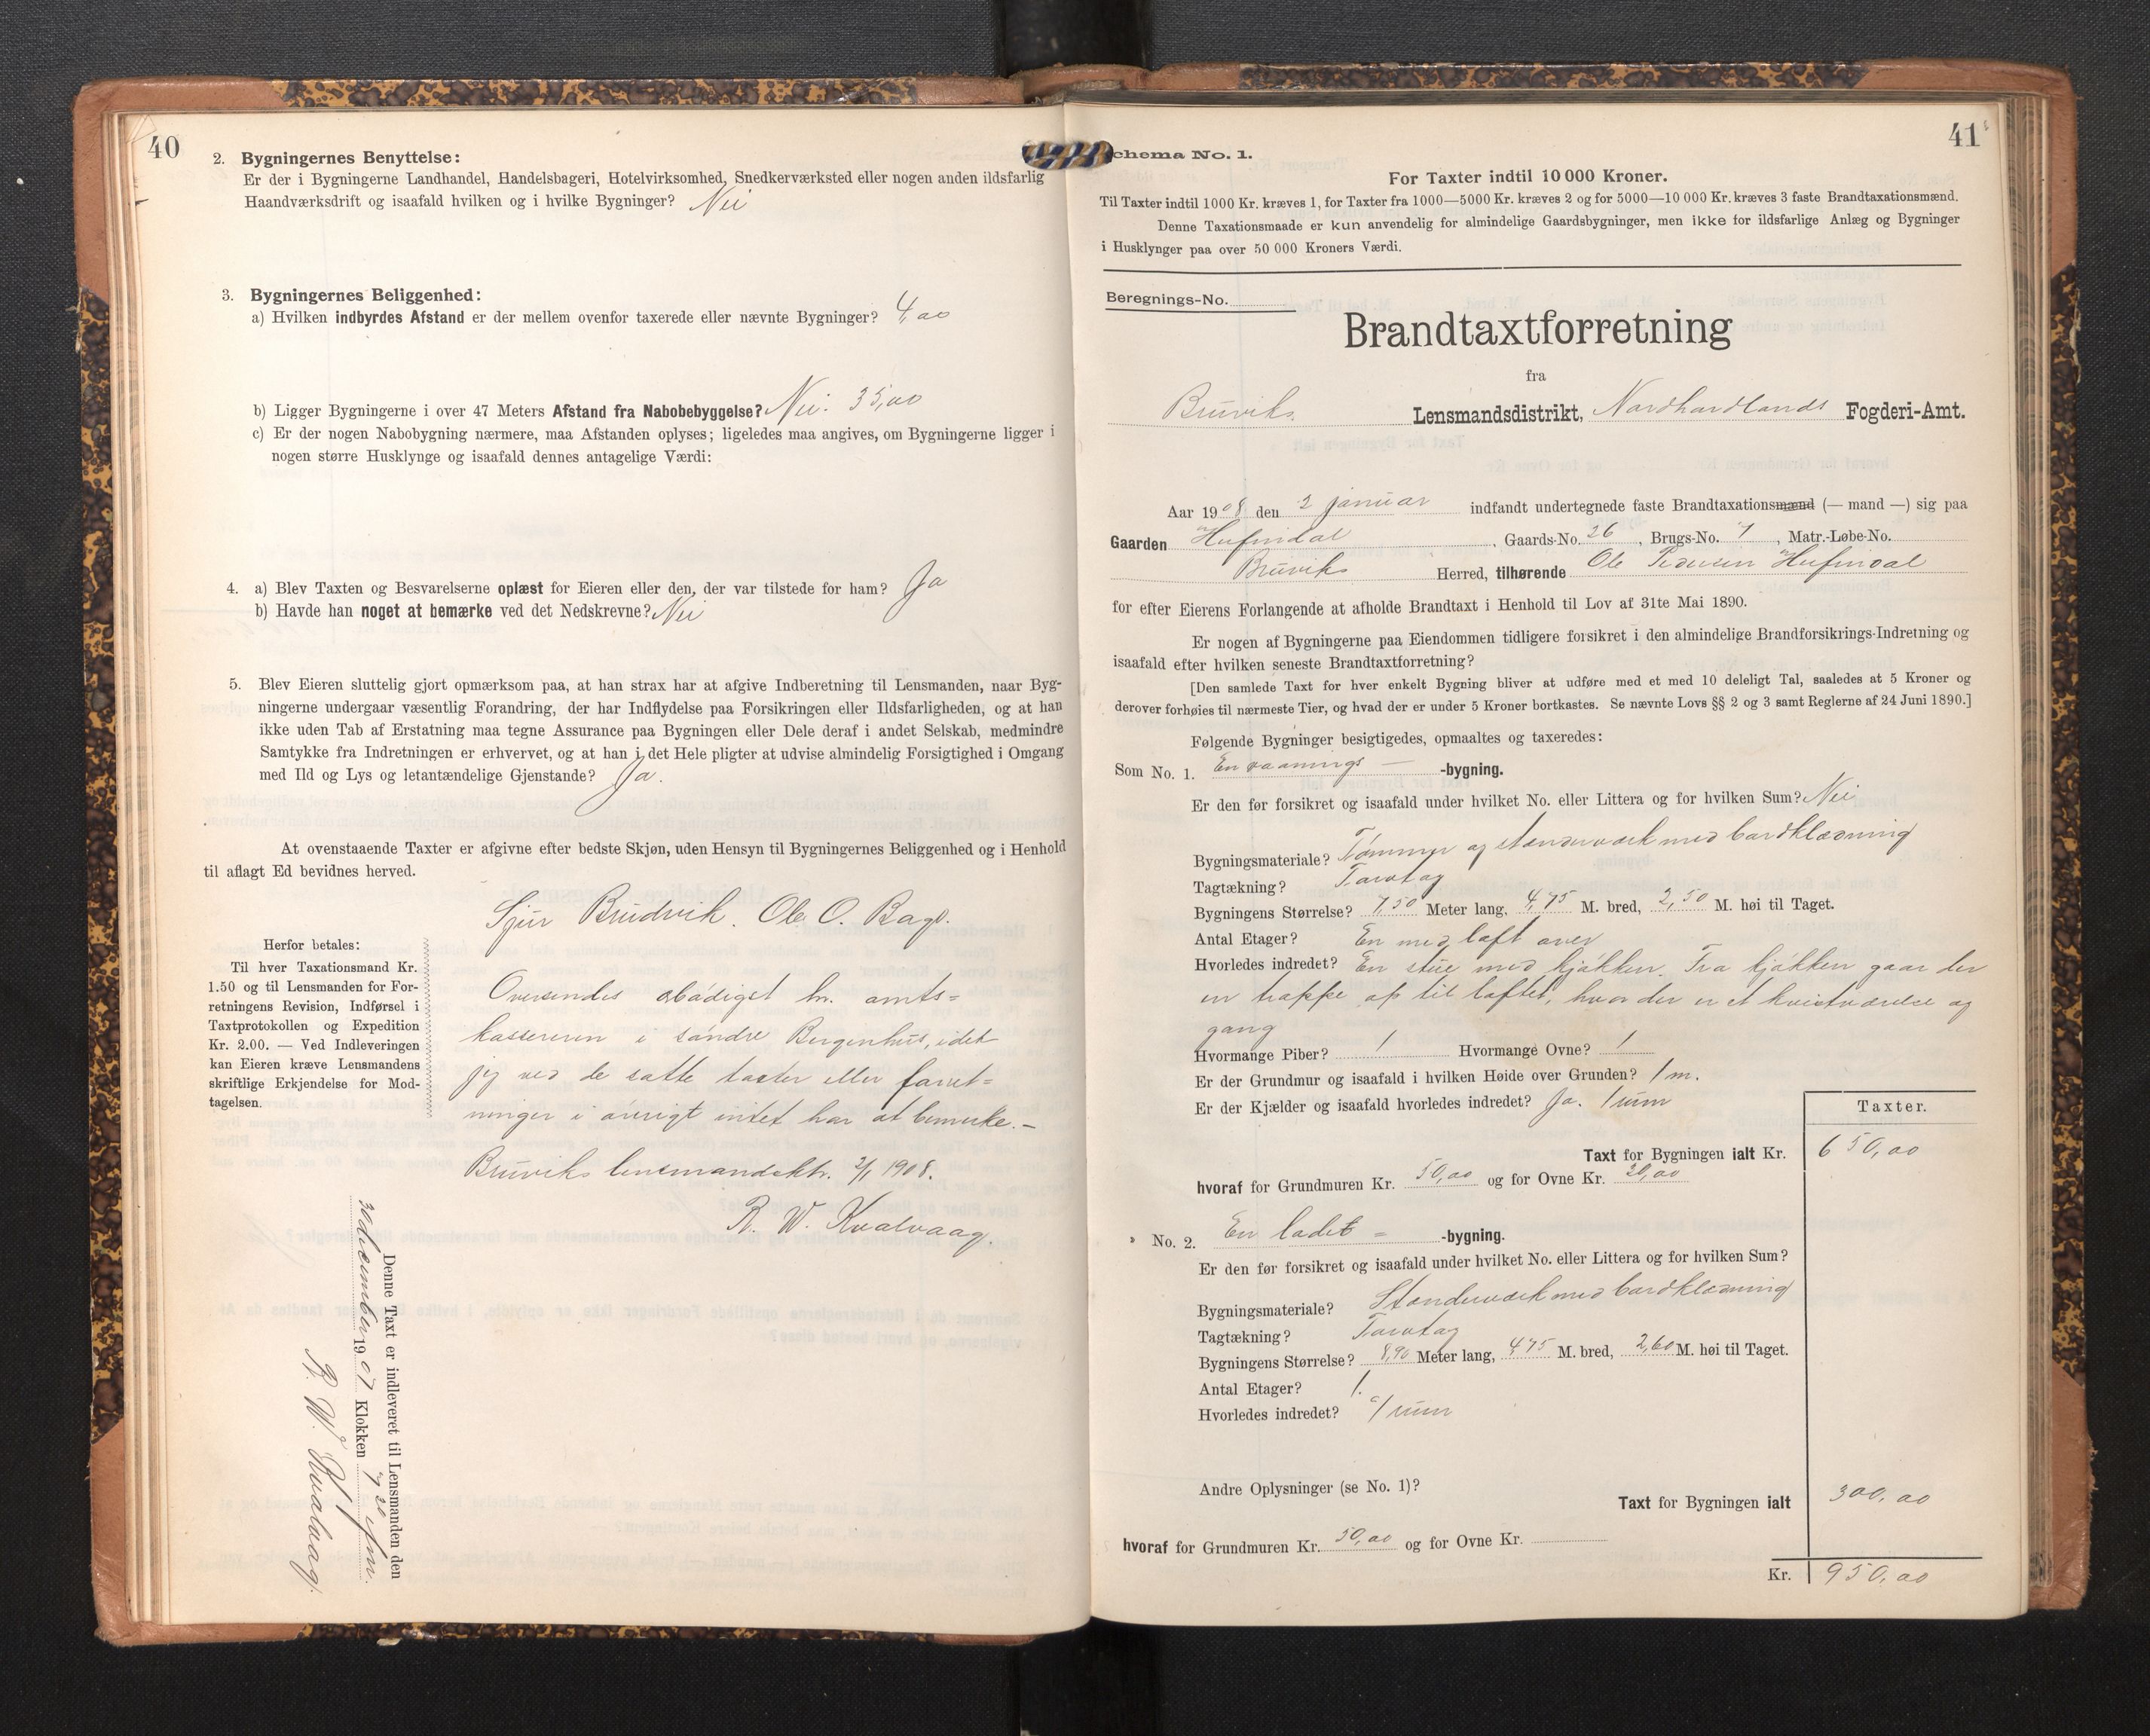 40
2. Bygningernes Benyttelse:
Er der i Bygningerne Landhandel, Handelsbageri, Hotelvirksomhed, Snedkerværksted eller nogen anden ildsfarlig
Haandværksdrift og isaafald hvilken og i hvilke Bygninger? Nei
3. Bygningernes Beliggenhed:
a) Hvilken indbyrdes Afstand er der mellem ovenfor taxerede eller nævnte Bygninger? 4,00
b) Ligger Bygningerne i over 47 Meters Afstand fra Nabobebyggelse? Nei. 35,00
c) Er der nogen Nabobygning nærmere, maa Afstanden oplyses; ligeledes maa angives, om Bygningerne ligger i
nogen større Husklynge og isaafald dennes antagelige Værdi:
4. a) Blev Taxten og Besvarelserne oplæst for Eieren eller den, der var tilstede for ham? Ja
b) Havde han noget at bemærke ved det Nedskrevne? Nei
5. Blev Eieren sluttelig gjort opmærksom paa, at han strax har at afgive Indberetning til Lensmanden, naar Byg-
ningerne undergaar væsentlig Forandring, der har Indflydelse paa Forsikringen eller Ildsfarligheden, og at han
ikke uden Tab af Erstatning maa tegne Assurance paa Bygningen eller Dele deraf i andet Selskab, medmindre
Samtykke fra Indretningen er erhvervet, og at han i det Hele pligter at udvise almindelig Forsigtighed i Omgang
med Ild og Lys og letantændelige Gjenstande? Ja.
At ovenstaaende Taxter er afgivne efter bedste Skjøn, uden Hensyn til Bygningernes Beliggenhed og i Henhold
til aflagt Ed bevidnes herved.
Sjur Brudvik. Ole O. Bage.
Herfor betales:
Til hver Taxationsmand Kr.
1.50 og til Lensmanden for For-
retningens Revision, Indførsel i
Taxtprotokollen og Expedition
Kr. 2.00. — Ved Indleveringen
kan Eieren kræve Lensmandens
skriftlige Erkjendelse for Mod-
tagelsen.
Oversendes ærbødigst hr. amts=
kassereren i søndre Bergenhus, idet
jeg ved de satte taxter eller forret=
ninger i øvrigt intet har at bemerke.—
Bruviks lensmandsktr. 2/1 1908.
R. W. Kvalvaag.
Denne Taxt er indleveret til Lensmanden den
30 december 1907 Klokken 7 20 fm.
R. W. Kvalvaag.
41
chema No. 1.
For Taxter indtil 10 000 Kroner.
Til Taxter indtil 1000 Kr. kræves 1, for Taxter fra 1000—5000 Kr. kræves 2 og for 5000—10 000 Kr. kræves 3 faste Brandtaxationsmænd.
Denne Taxationsmaade er kun anvendelig for almindelige Gaardsbygninger, men ikke for ildsfarlige Anlæg og Bygninger
i Husklynger paa over 50 000 Kroners Værdi.
Beregnings-No.
Brandtaxtforretning
fra
Bruviks Lensmandsdistrikt, Nordhordlands Fogderi-Amt.
Aar 1908 den 2 januar indfandt undertegnede faste Brandtaxationsmænd (— mand —) sig paa
Gaarden Hufindal, Gaards-No. 26, Brugs-No. 7, Matr.-Løbe-No.
Bruviks Herred, tilhørende Ole Pedersen Hufindal
for efter Eierens Forlangende at afholde Brandtaxt i Henhold til Lov af 31te Mai 1890.
Er nogen af Bygningerne paa Eiendommen tidligere forsikret i den almindelige Brandforsikrings-Indretning og
isaafald efter hvilken seneste Brandtaxtforretning?
[Den samlede Taxt for hver enkelt Bygning bliver at udføre med et med 10 deleligt Tal, saaledes at 5 Kroner og
derover forhøies til nærmeste Tier, og hvad der er under 5 Kroner bortkastes. Se nævnte Lovs §§ 2 og 3 samt Reglerne af 24 Juni 1890.]
Følgende Bygninger besigtigedes, opmaaltes og taxeredes:
Som No. 1. En vaanings — -bygning.
Er den før forsikret og isaafald under hvilket No. eller Littera og for hvilken Sum? Nei
Bygningsmateriale? Tømmer og standerværk med bordklædning
Tagtækning? Torvtag
Bygningens Størrelse? 7,50 Meter lang, 4,75 M. bred, 2,50 M. høi til Taget.
Antal Etager? En med loft over
Hvorledes indredet? En stue med kjøkken. Fra kjøkken gaar der
en trappe op til loftet, hvor der er et kvistværelse og
gang
Hvormange Piber? 1 Hvormange Ovne? 1
Er der Grundmur og isaafald i hvilken Høide over Grunden? 1 m.
Er der Kjælder og isaafald hvorledes indredet? Ja. 1 rum
Taxter.
Taxt for Bygningen ialt Kr. 650,00
hvoraf for Grundmuren Kr. 50,00 og for Ovne Kr. 20,00
No. 2. En lade = -bygning.
Er den før forsikret og isaafald under hvilket No. eller Littera og for hvilken Sum?
Bygningsmateriale? Standerværk med bordklædning
Tagtækning? Torvtag
Bygningens Størrelse? 8,90 Meter lang, 4,75 M. bred, 2,60 M. høi til Taget.
Antal Etager? 1.
Hvorledes indredet? 1 rum
Andre Oplysninger (se No. 1)?
Taxt for Bygningen ialt 300,00
hvoraf for Grundmuren Kr. 50,00 og for Ovne Kr.
Kr. 950,00